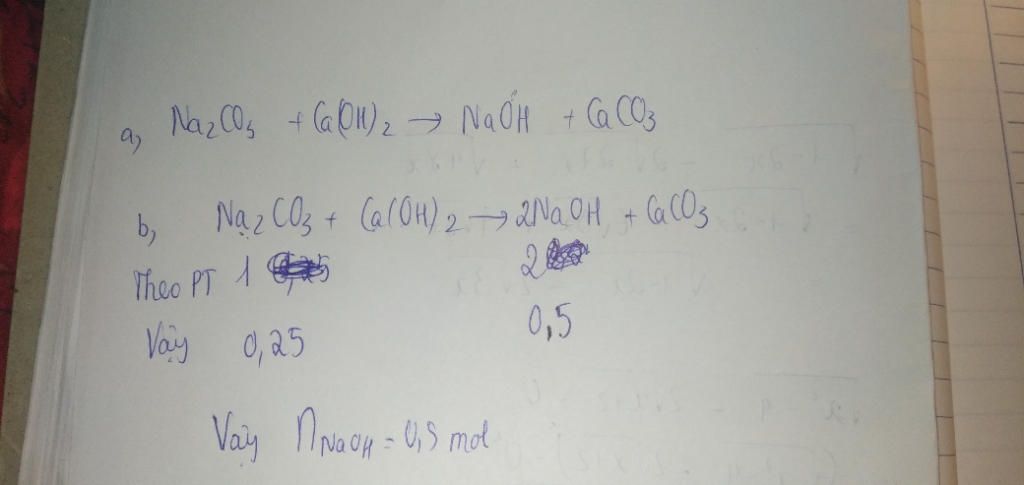 a, Na₂CO₃ + Ca(OH)₂ → NaOH + CaCO₃
b, Na₂CO₃ + Ca(OH)₂ → 2NaOH + CaCO₃
Theo PT 1 2
Vậy 0,25 0,5
Vậy nNaOH = 0,5 mol